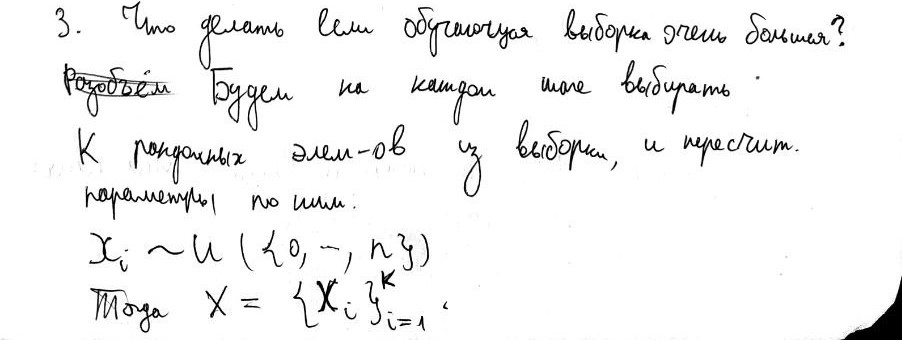 3. Что делать если обучающая выборка очень большая?
Разобъём Будем на каждом шаге выбирать
К рандомных элем-ов из выборки, и пересчит.
параметры по ним.
X_i ~ U ({0, –, n})
Тогда X = {X_i}_{i=1}^K.